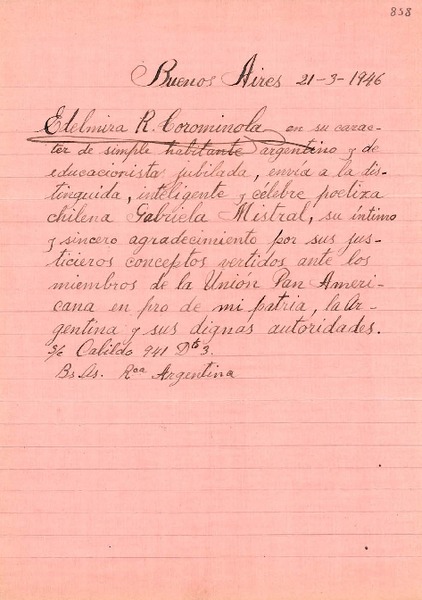 858
Buenos Aires 21-3-1946
Edelmira R. Corominola, en su carac-
ter de simple habitante argentino y de
educacionista jubilada, envía a la dis-
tinguida, inteligente y célebre poetiza
chilena Gabriela Mistral, su íntimo
y sincero agradecimiento por sus jus-
ticieros conceptos vertidos ante los
miembros de la Unión Pan Ameri-
cana en pro de mi patria, la Ar-
gentina y sus dignas autoridades.
S/c Cabildo 941 Dto 3.
Bs As. Rca Argentina